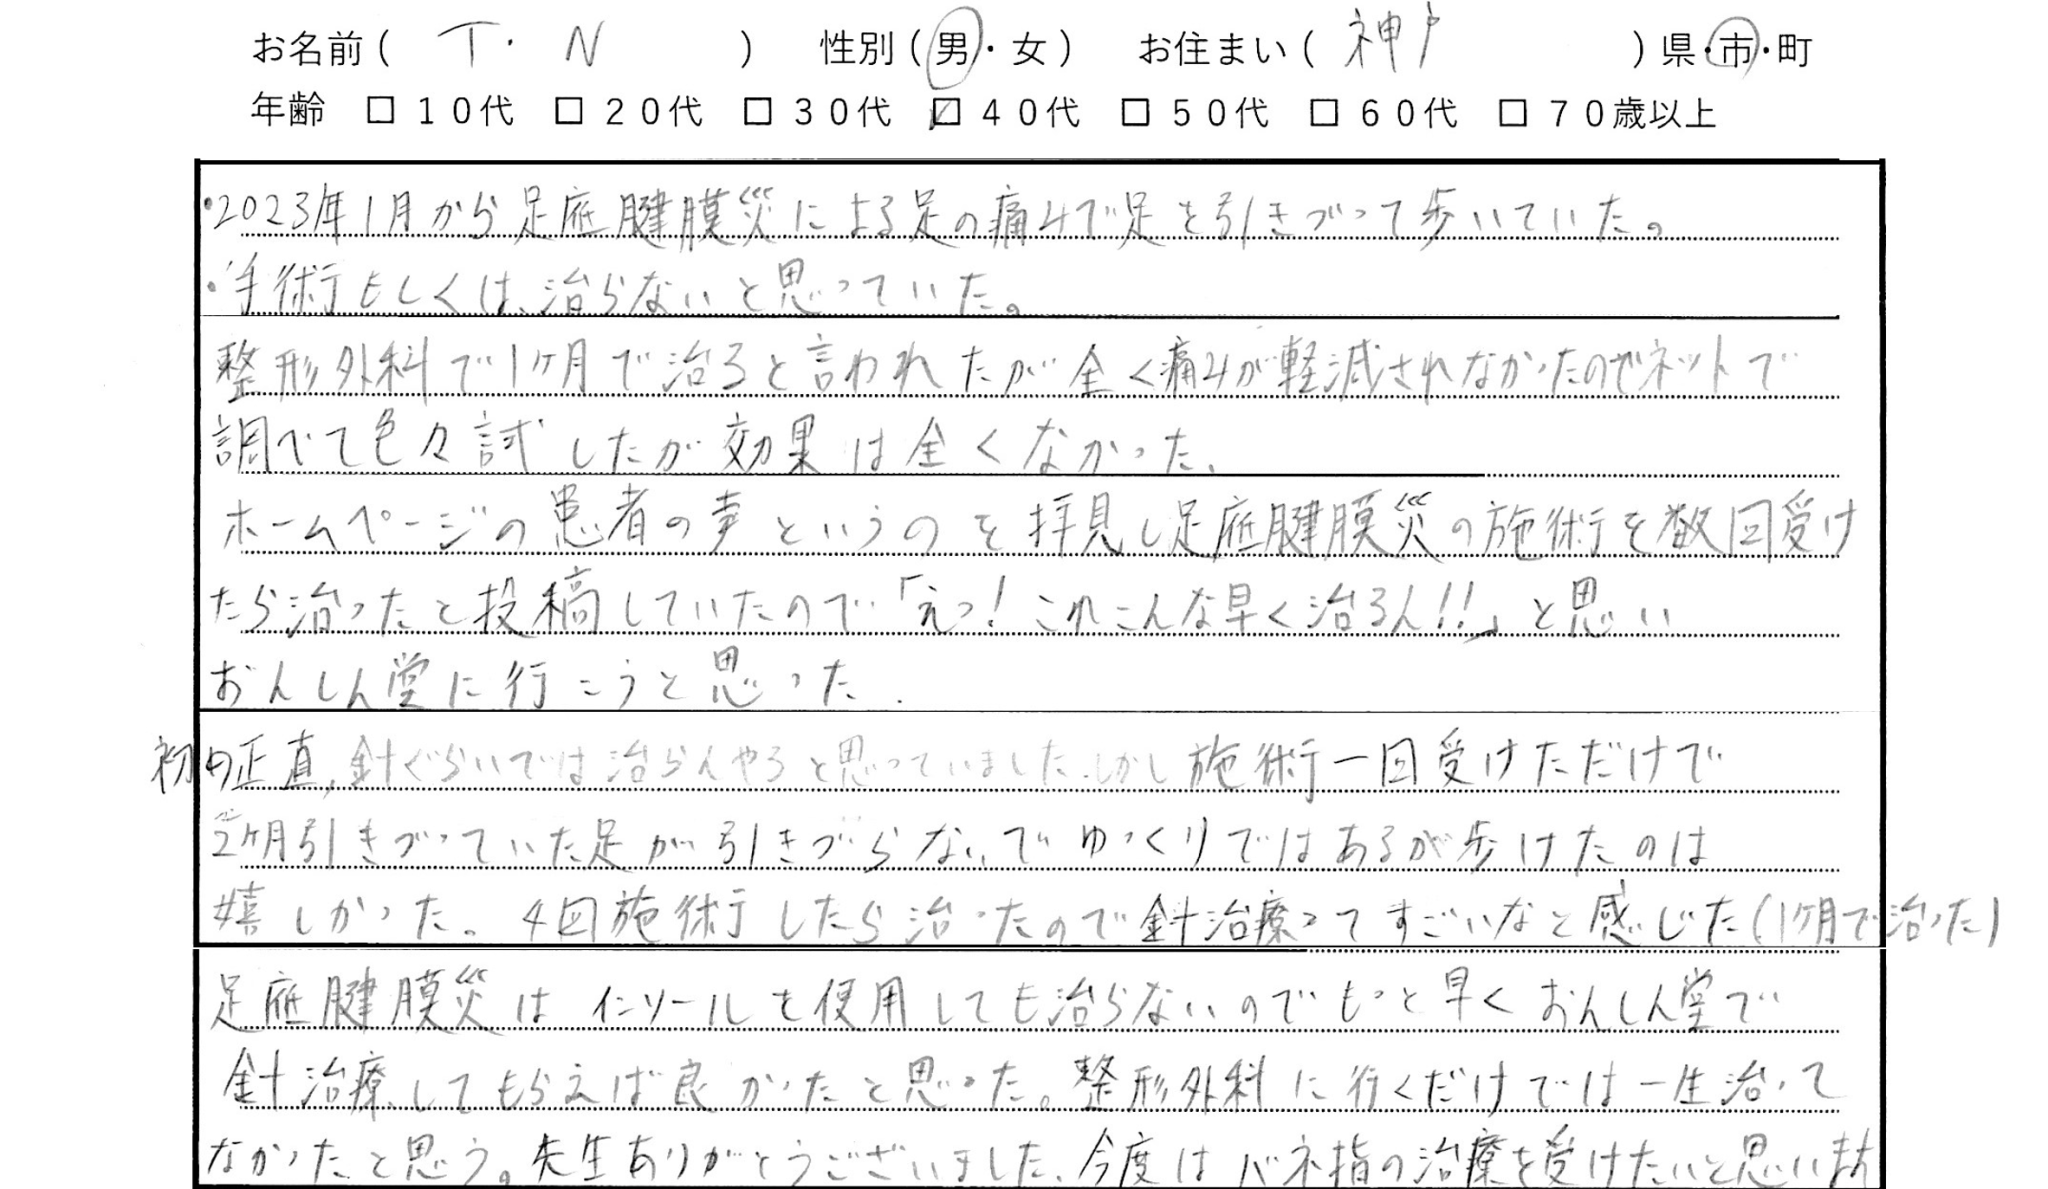 お名前( T・N ) 性別(男・女) お住まい( 神戸 )県・市・町
年齢 □10代 □20代 □30代 ☑40代 □50代 □60代 □70歳以上
・2023年1月から足底腱膜災による足の痛みで足を引きづって歩いていた。
・手術もしくは、治らないと思っていた。
整形外科で1ヶ月で治ると言われたが全く痛みが軽減されなかったのでネットで
調べて色々試したが効果は全くなかった、
ホームページの患者の声というのを拝見し足底腱膜災の施術を数回受け
たら治ったと投稿していたので「えっ!これこんな早く治るん!!」と思い
おんしん堂に行こうと思った.
初め正直,針ぐらいでは治らんやろと思っていました.しかし施術一回受けただけで
2ヶ月引きづっていた足が引きづらないでゆっくりではあるが歩けたのは
嬉しかった。4回施術したら治ったので針治療ってすごいなと感じた(1ヶ月で治った)
足底腱膜災はインソールを使用しても治らないのでもっと早くおんしん堂で
針治療してもらえば良かったと思った。整形外科に行くだけでは一生治って
なかったと思う。先生ありがとうございました、今度はバネ指の治療を受けたいと思います